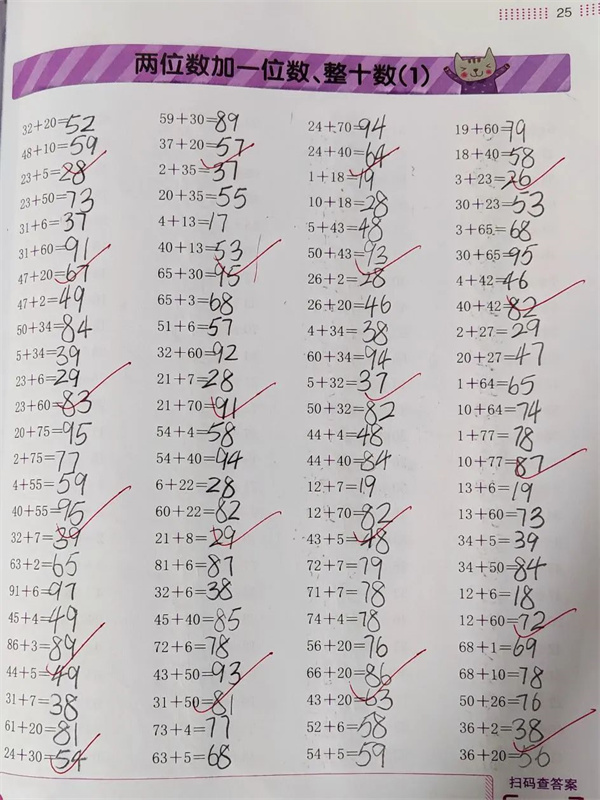 25
两位数加一位数、整十数(1)
32+20=52
48+10=59
23+5=28
23+50=73
31+6=37
31+60=91
47+20=67
47+2=49
50+34=84
5+34=39
23+6=29
23+60=83
20+75=95
2+75=77
4+55=59
40+55=95
32+7=39
63+2=65
91+6=97
45+4=49
86+3=89
44+5=49
31+7=38
61+20=81
24+30=54
59+30=89
37+20=57
2+35=37
20+35=55
4+13=17
40+13=53
65+30=95
65+3=68
51+6=57
32+60=92
21+7=28
21+70=91
54+4=58
54+40=94
6+22=28
60+22=82
21+8=29
81+6=87
32+6=38
45+40=85
72+6=78
43+50=93
31+50=81
73+4=77
63+5=68
24+70=94
24+40=64
1+18=19
10+18=28
5+43=48
50+43=93
26+2=28
26+20=46
4+34=38
60+34=94
5+32=37
50+32=82
44+4=48
44+40=84
12+7=19
12+70=82
43+5=48
72+7=79
71+7=78
74+4=78
56+20=76
66+20=86
43+20=63
52+6=58
54+5=59
19+60=79
18+40=58
3+23=26
30+23=53
3+65=68
30+65=95
4+42=46
40+42=82
2+27=29
20+27=47
1+64=65
10+64=74
1+77=78
10+77=87
13+6=19
13+60=73
34+5=39
34+50=84
12+6=18
12+60=72
68+1=69
68+10=78
50+26=76
36+2=38
36+20=56
扫码查答案